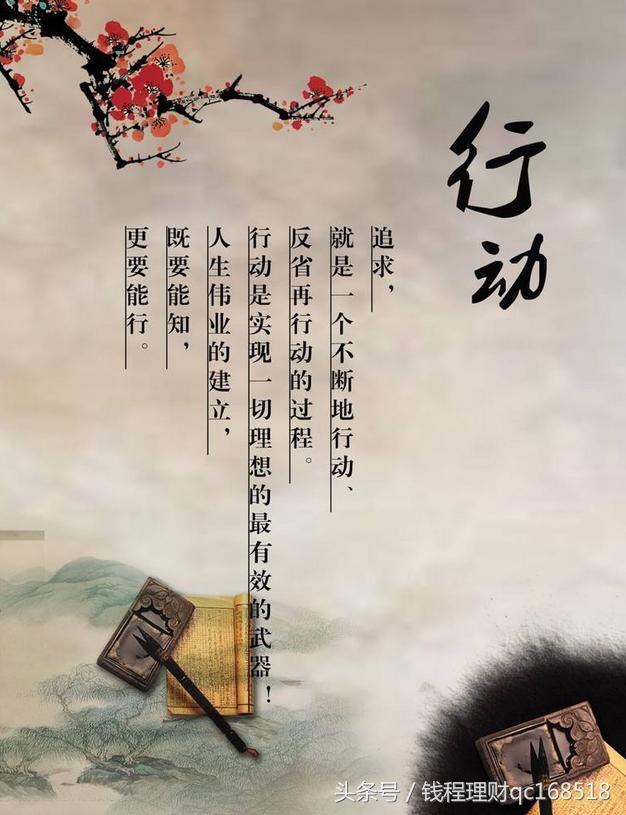 行动
追求，
就是一个不断地行动、
反省再行动的过程。
行动是实现一切理想的最有效的武器！
人生伟业的建立，
既要能知，
更要能行。
头条号 / 钱程理财qc168518